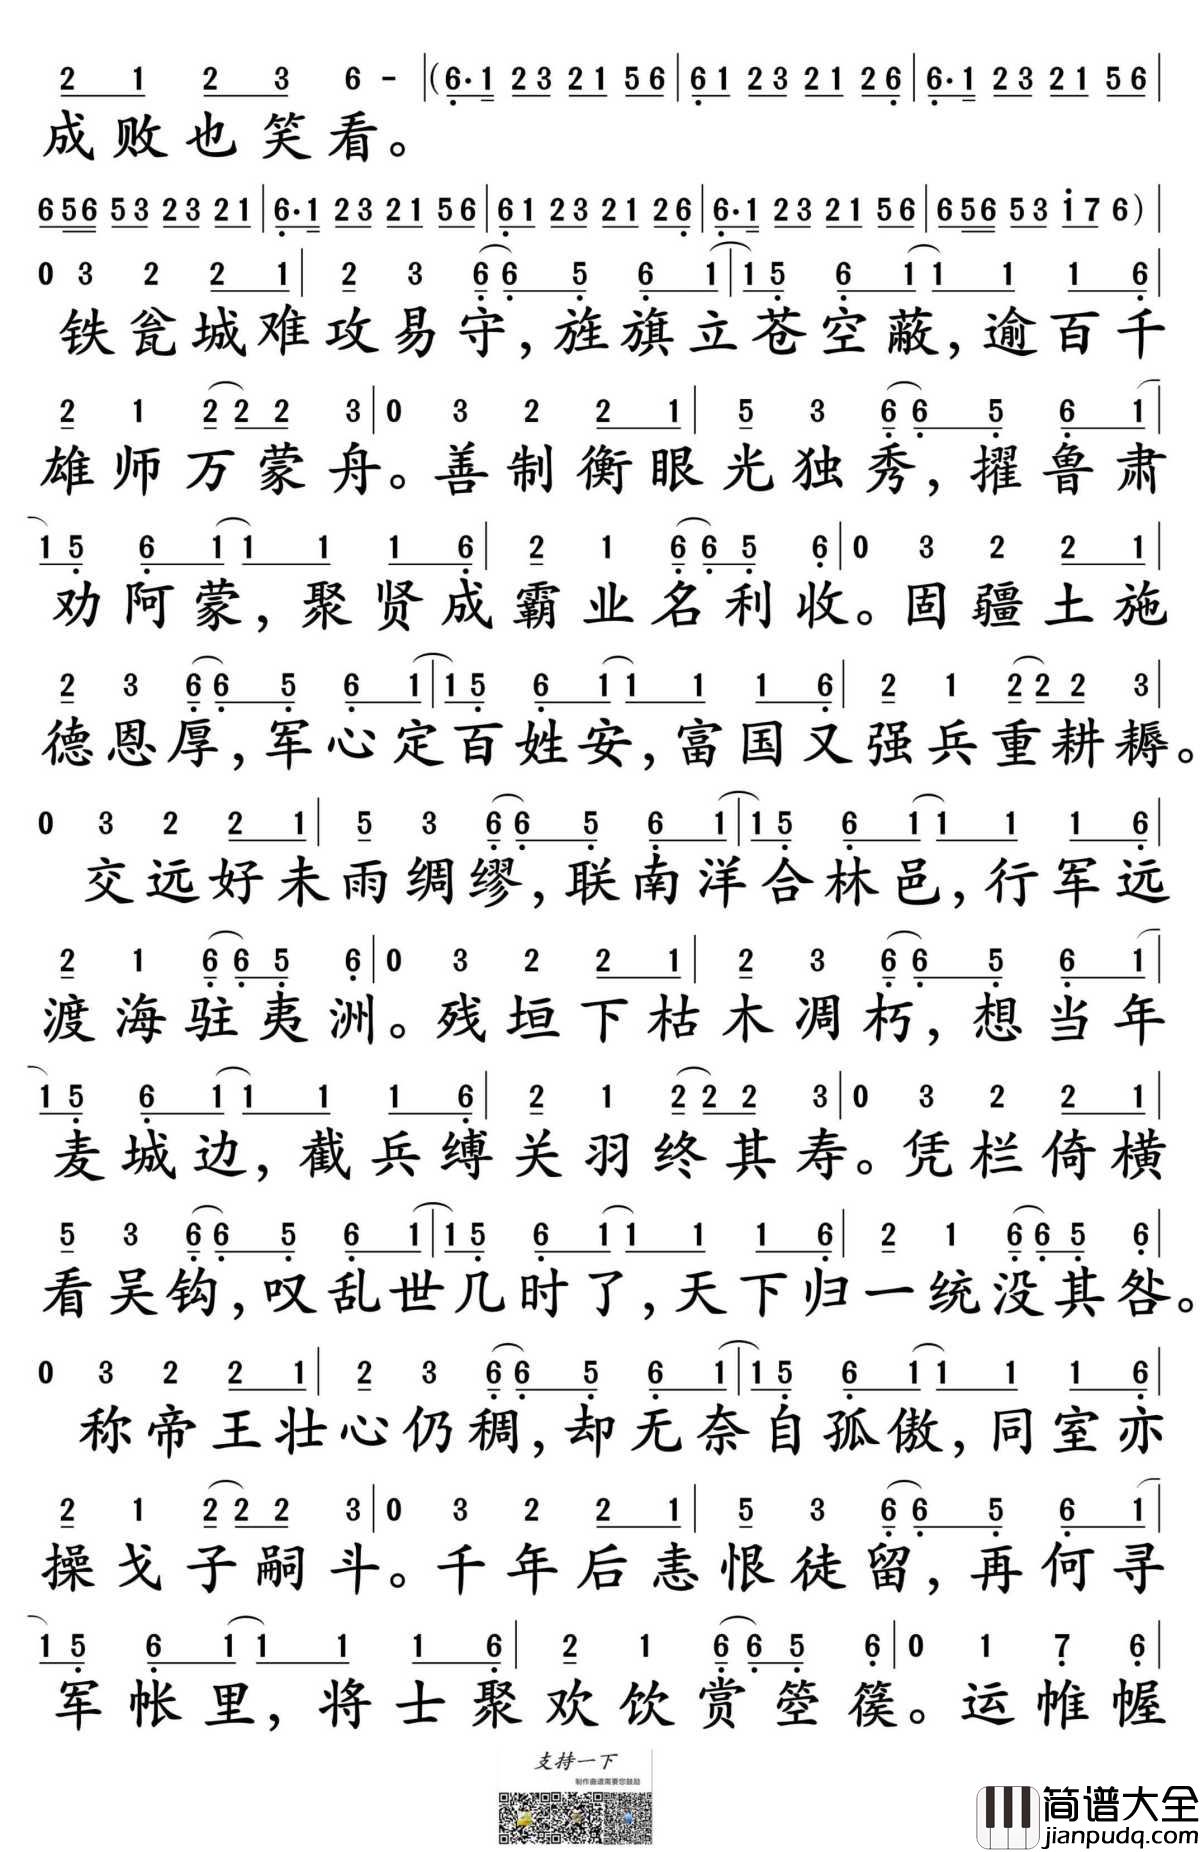 2 1 2 3 6 - |(6·1 23 21 56|61 23 21 26|6·1 23 21 56|
成败也笑看。
656 53 23 21|6·1 23 21 56|61 23 21 26|6·1 23 21 56|656 53 17 6)|
0 3 2 2 1| 2 3 6 6 5 6 1|1 5 6 1 1 1 1 6|
铁瓮城难攻易守,旌旗立苍空蔽,逾百千
2 1 2 2 2 3|0 3 2 2 1| 5 3 6 6 5 6 1|
雄师万蒙舟。善制衡眼光独秀,擢鲁肃
1 5 6 1 1 1 1 6| 2 1 6 6 5 6|0 3 2 2 1|
劝阿蒙,聚贤成霸业名利收。固疆土施
2 3 6 6 5 6 1|1 5 6 1 1 1 1 6| 2 1 2 2 2 3|
德恩厚,军心定百姓安,富国又强兵重耕耨。
0 3 2 2 1| 5 3 6 6 5 6 1|1 5 6 1 1 1 1 6|
交远好未雨绸缪,联南洋合林邑,行军远
2 1 6 6 5 6|0 3 2 2 1| 2 3 6 6 5 6 1|
渡海驻夷洲。残垣下枯木凋朽,想当年
1 5 6 1 1 1 1 6| 2 1 2 2 2 3|0 3 2 2 1|
麦城边,截兵缚关羽终其寿。凭栏倚横
5 3 6 6 5 6 1|1 5 6 1 1 1 1 6| 2 1 6 6 5 6|
看吴钩,叹乱世几时了,天下归一统没其咎。
0 3 2 2 1| 2 3 6 6 5 6 1|1 5 6 1 1 1 1 6|
称帝王壮心仍稠,却无奈自孤傲,同室亦
2 1 2 2 2 3|0 3 2 2 1| 5 3 6 6 5 6 1|
操戈子嗣斗。千年后恚恨徒留,再何寻
1 5 6 1 1 1 1 6| 2 1 6 6 5 6|0 1 7 6|
军帐里,将士聚欢饮赏箜篌。运帷幄
支持一下
制作曲谱需要您鼓励
简谱大全
jianpudq.com